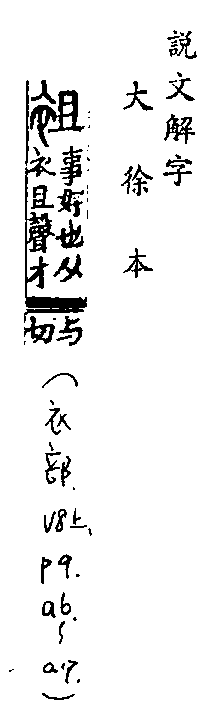 説文解字
大徐本
祖 事好也从
衣且聲才
与
切
(衣部.V8上、p9.a6.~a7.)